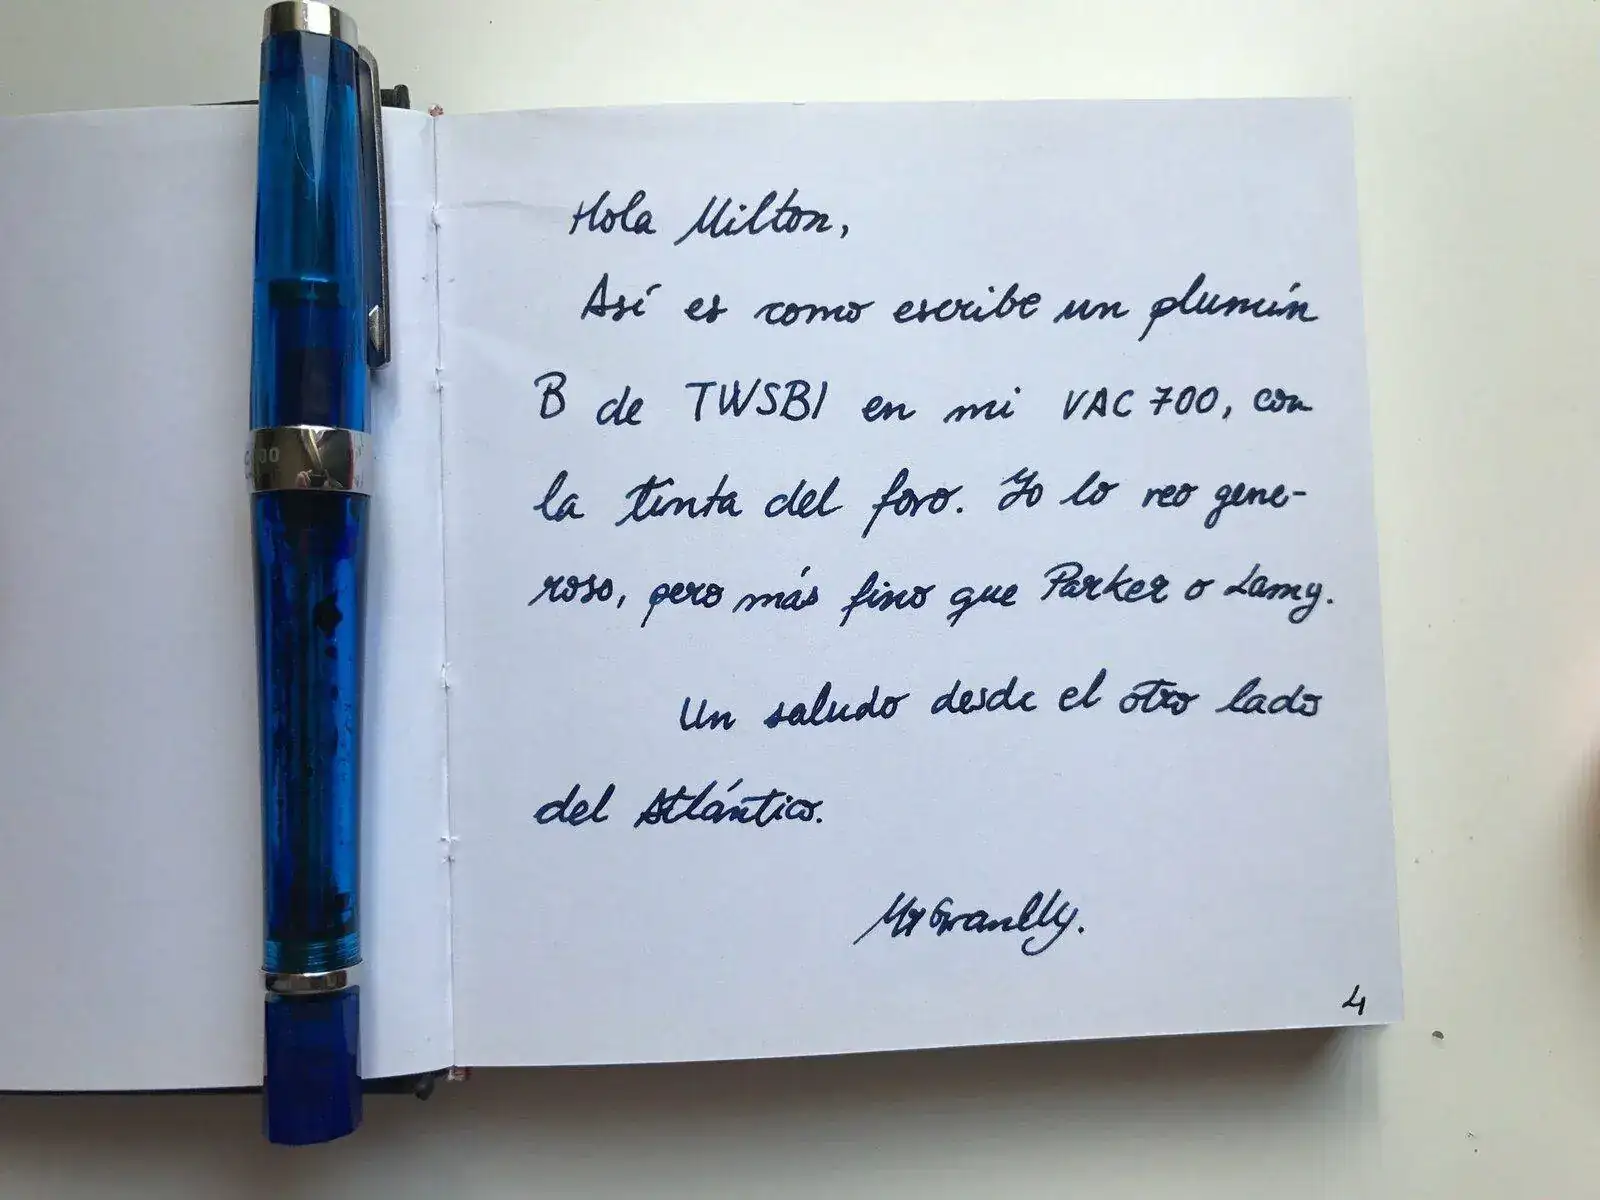 Hola Milton,
Así es como escribe un plumín
B de TWSBI en mi VAC 700, con
la tinta del foro. Yo lo veo gene-
roso, pero más fino que Parker o Lamy.
Un saludo desde el otro lado
del Atlántico.
4